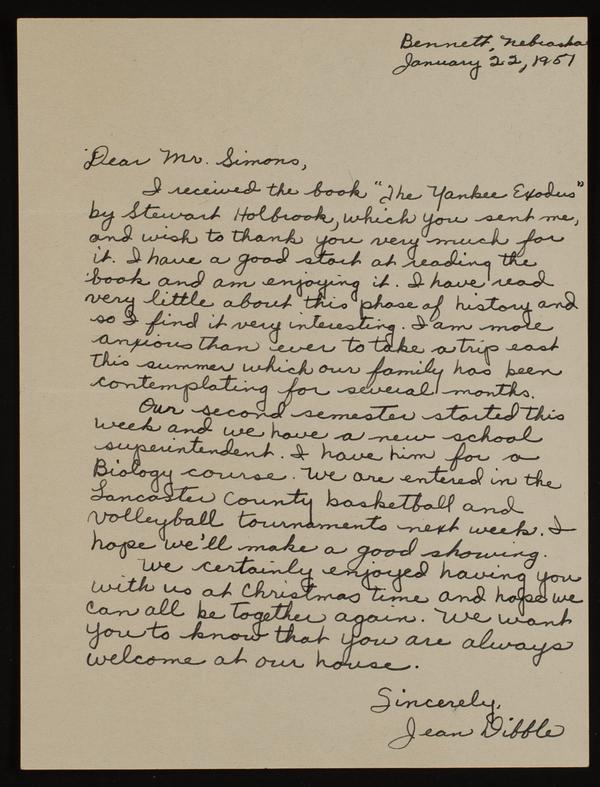 Bennett, Nebraska
January 22, 1951
Dear Mr. Simons,
I received the book "The Yankee Exodus"
by Stewart Holbrook, which you sent me,
and wish to thank you very much for
it. I have a good start at reading the
book and am enjoying it. I have read
very little about this phase of history and
so I find it very interesting. I am more
anxious than ever to take a trip east
this summer which our family has been
contemplating for several months.
Our second semester started this
week and we have a new school
superintendent. I have him for a
Biology course. We are entered in the
Lancaster County basketball and
volleyball tournaments next week. I
hope we'll make a good showing.
We certainly enjoyed having you
with us at Christmas time and hope we
can all be together again. We want
you to know that you are always
welcome at our house.
Sincerely,
Jean Dibble